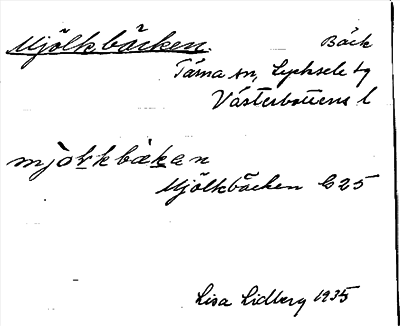 Mjölkbäcken. Bäck
Tärna sn, Lycksele lg
Västerbottens l
mjorkbäken
Mjölkbäcken G25
Lisa Lidberg 1935